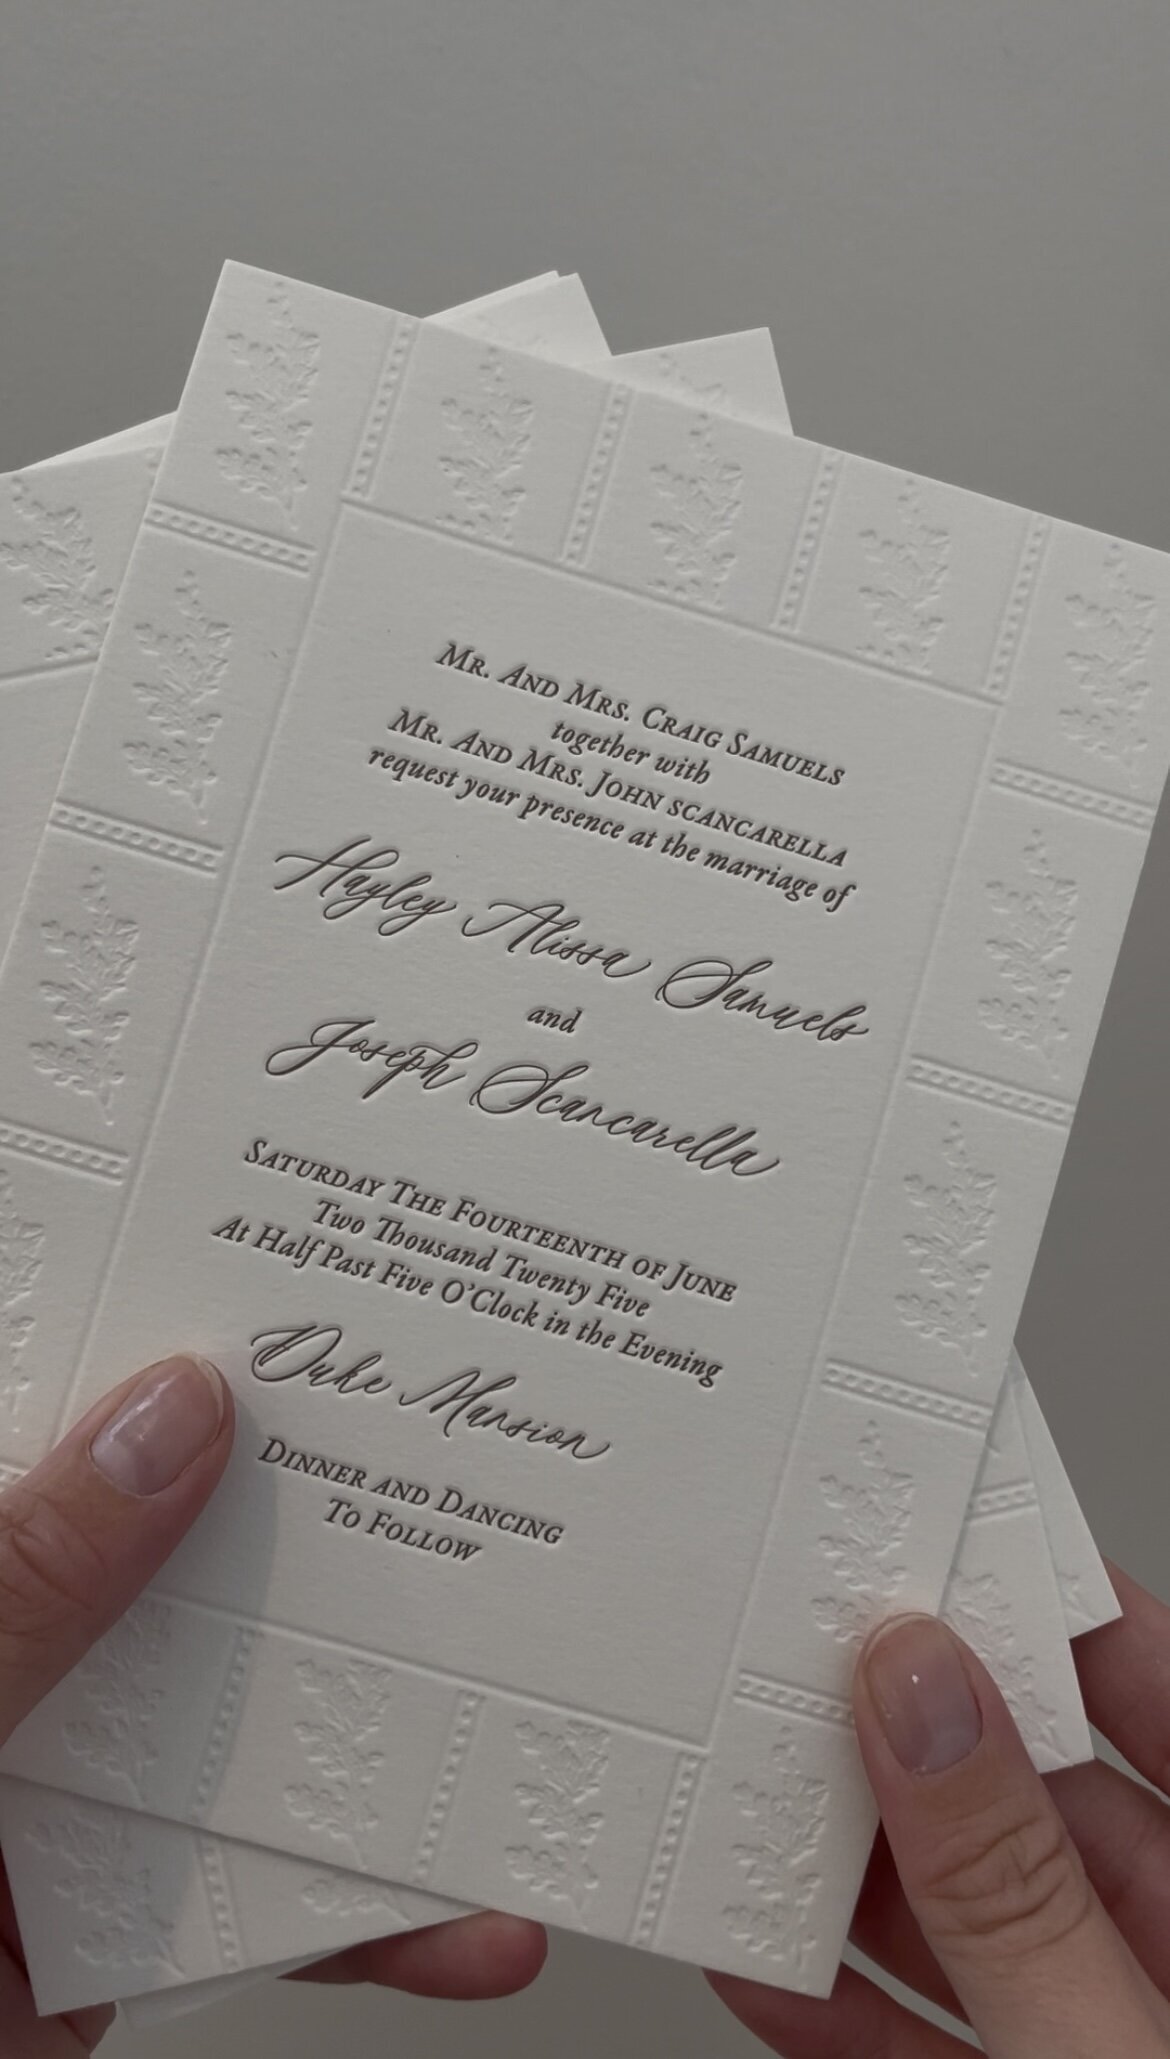 Mr. And Mrs. Craig Samuels
together with
Mr. And Mrs. John scancarella
request your presence at the marriage of
Hayley Alissa Samuels
and
Joseph Scancarella
Saturday The Fourteenth of June
Two Thousand Twenty Five
At Half Past Five O'Clock in the Evening
Duke Mansion
Dinner and Dancing
To Follow